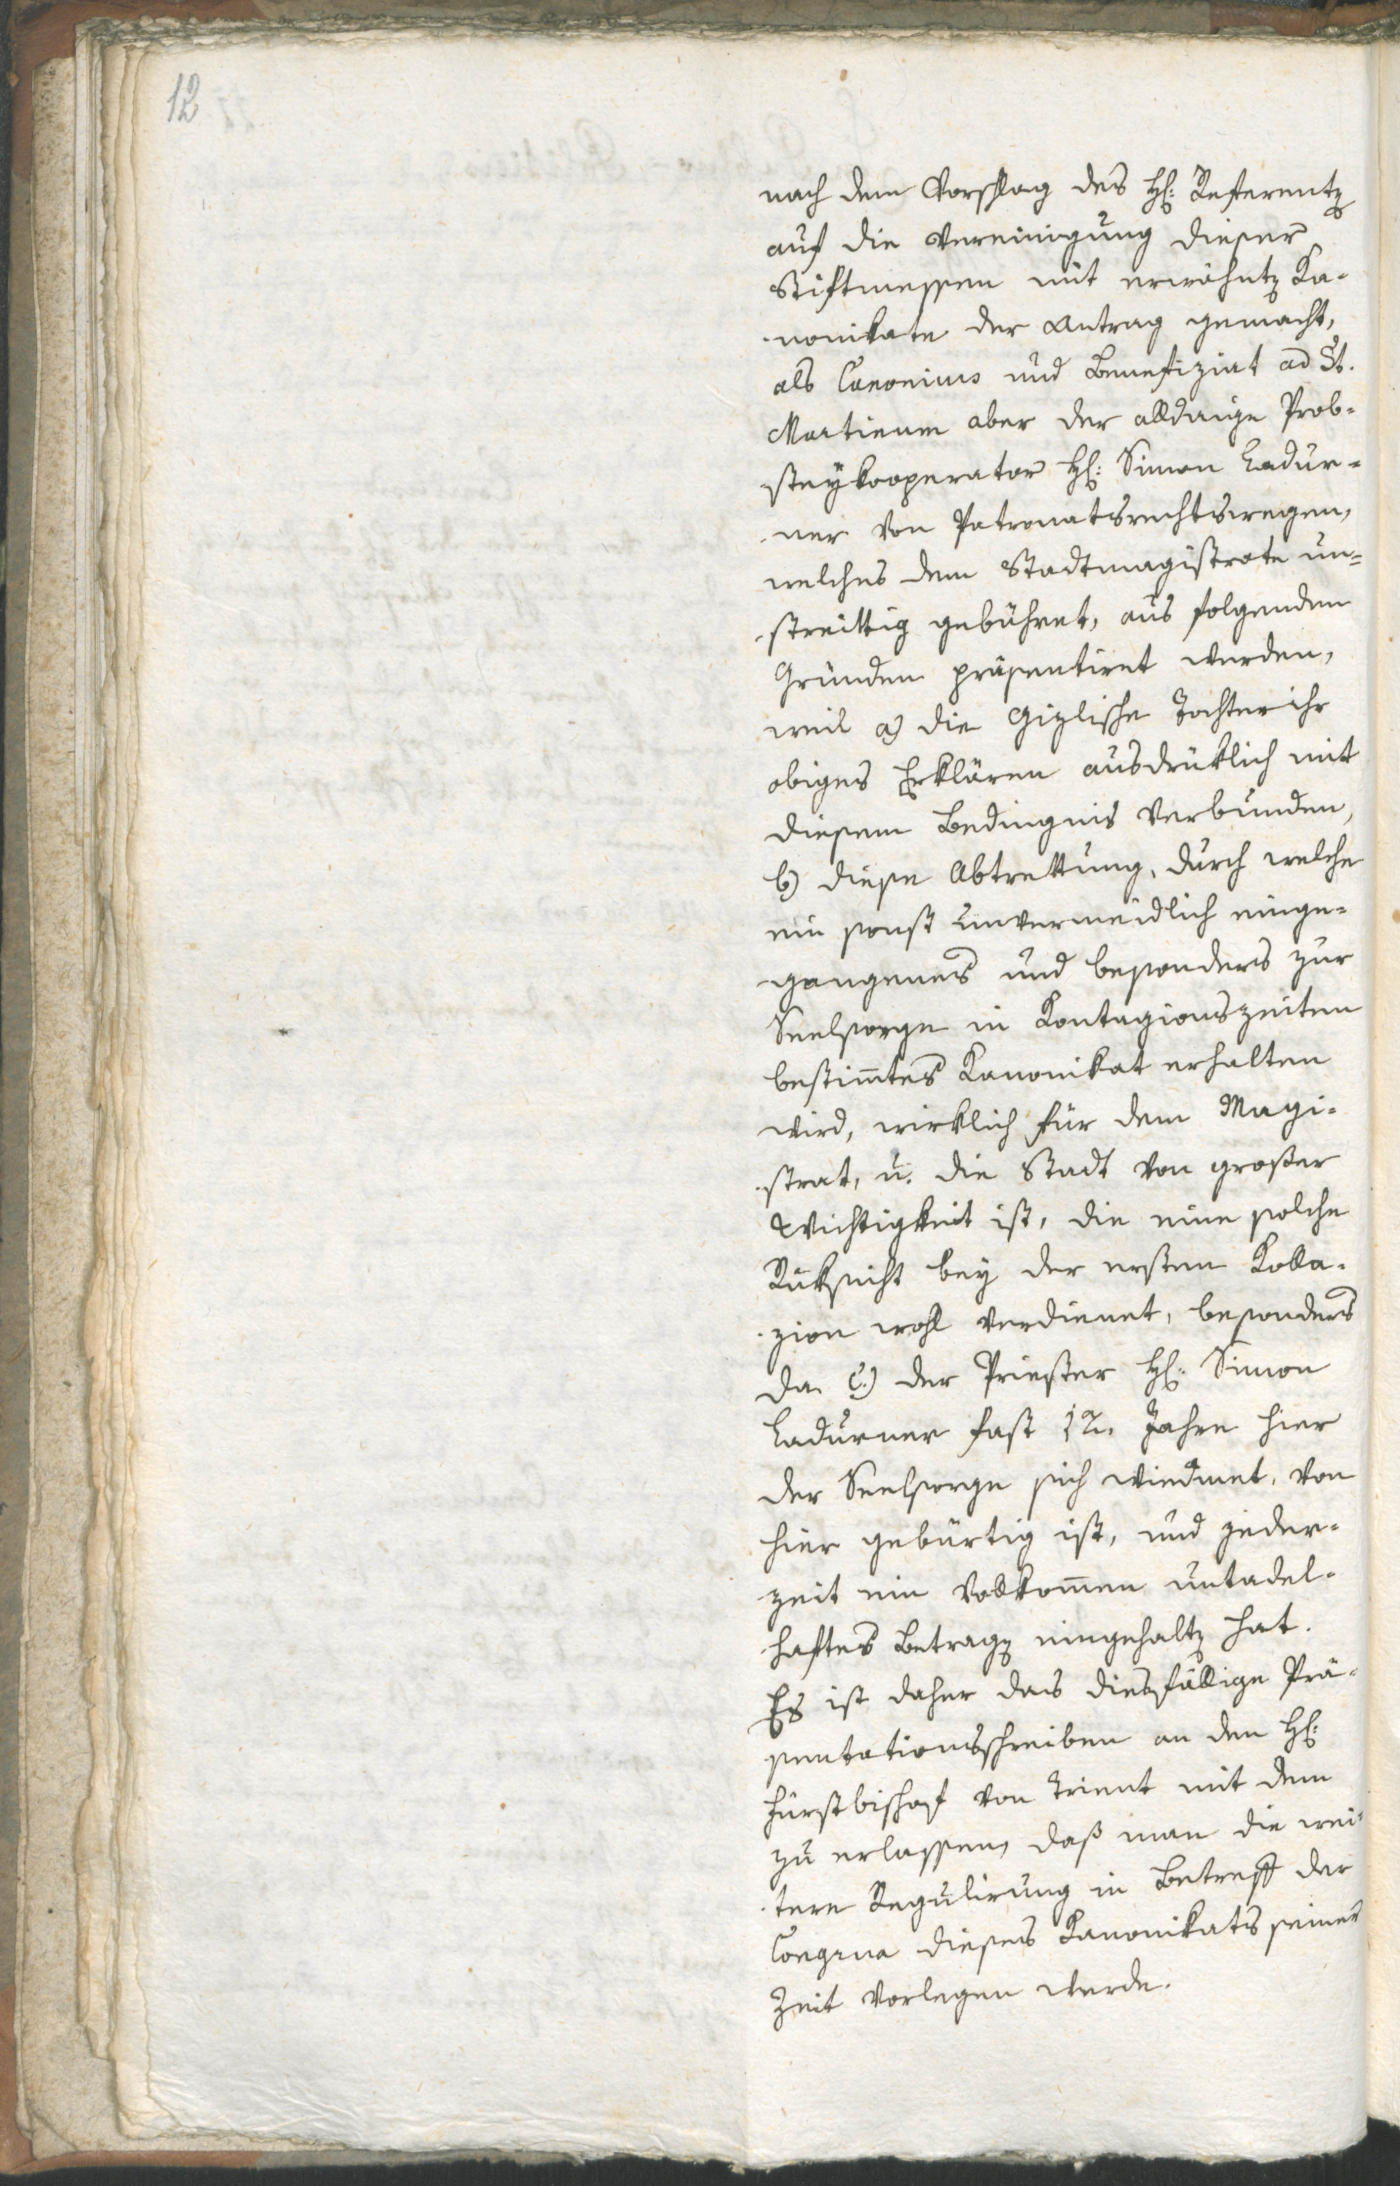 12
nach dem Vorschlag des H: Referentz
auf die Vereinigung dieser
Stiftmessen mit erwähntz Ka-
nonikate der Antrag gemacht,
als Canonicus und Benefiziat ad St.
Martinum aber der alldaige Prob-
steykooperator H: Simon Ladur-
ner von Patronatsrechtswegen,
welches dem Stadtmagistrate un-
streittig gebühret, aus folgenden
Gründen präsentiret werden,
weil a) die Gizlische Tochter ihr
obiges Erklären ausdrüklich mit
diesem Bedingnis verbunden,
b) diese Abtrettung, durch welche
ein sonst unvermeidlich einge-
gangenes und besonders zur
Seelsorge in Kontagionszeiten
bestimtes Kanonikat erhalten
wird, wirklich für dem Magi-
strat, u. die Stadt von großer
Wichtigkeit ist, die eine solche
Rüksicht bey der ersten Kolla-
zion wohl verdienet, besonders
da c.) der Priester H: Simon
Ladurner fast 12. Jahre hier
der Seelsorge sich wiedmet, von
hier gebürtig ist, und jeder-
zeit ein vollkomen untadel-
haftes Betragz eingehaltz hat.
Es ist daher das diesfällige Prä-
sentationsschreiben an den H:
Fürstbischof von Trient mit dem
zu erlassen, daß man die wei-
tere Regulirung in Betreff der
Congrua dieses Kanonikats seiner
Zeit vorlegen werde.